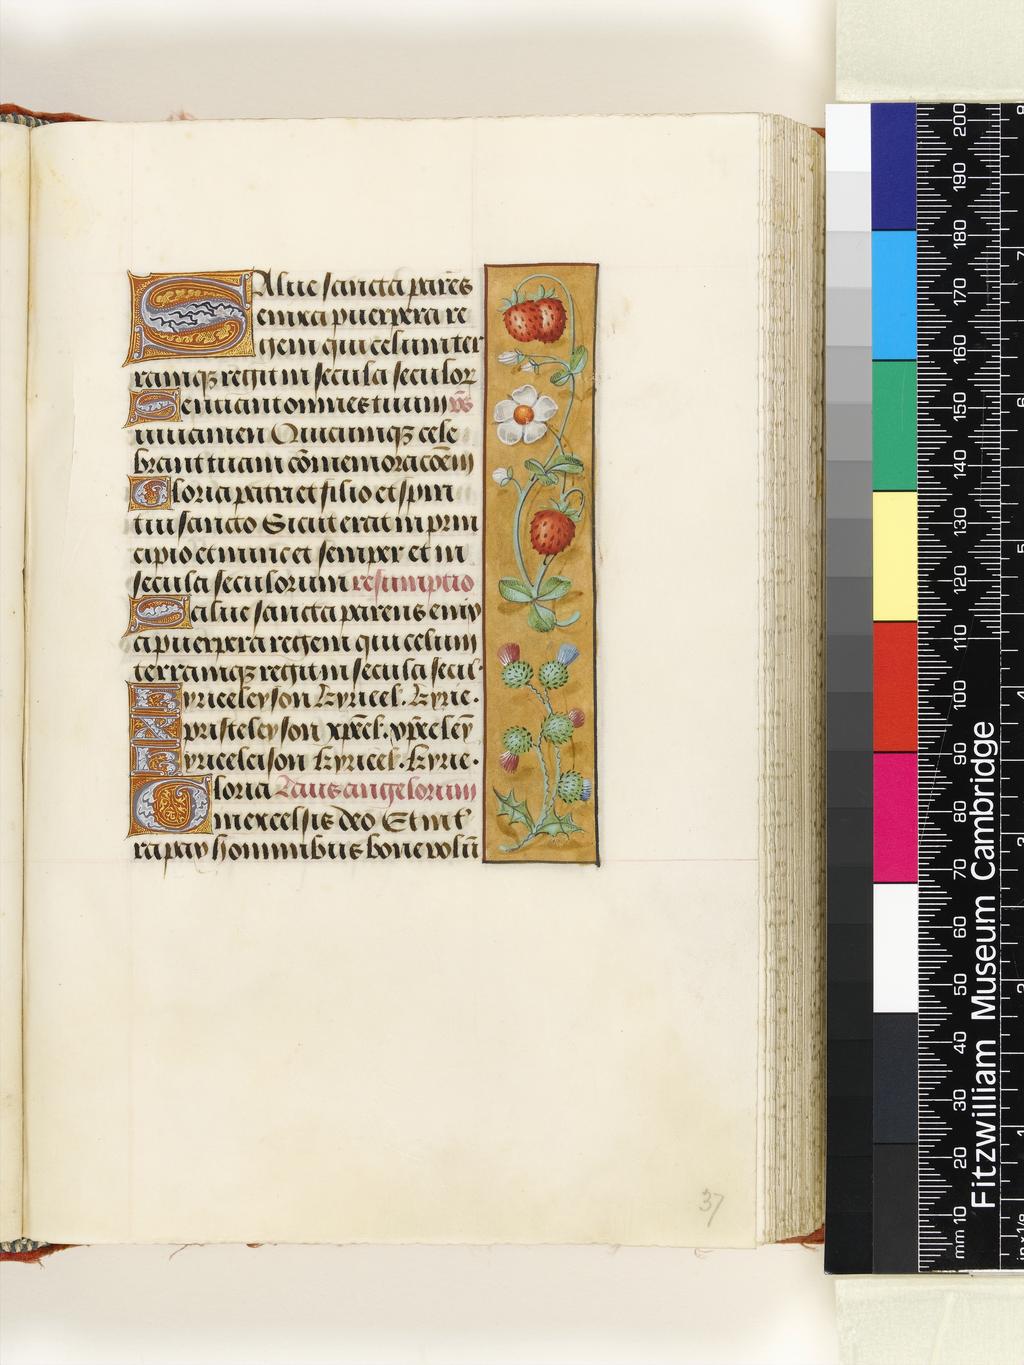 Salue sancta pares
enixa puerpera re
gem qui celum ter
ramqz regit in secula seculor
Sentiant omnes tuum vs
iuuamen Quicumqz cele
brant tuam cōmemoracoēm
Gloria patri et filio et spiri
tui sancto Sicut erat in prin
cipio et nunc et semper et in
secula seculorum resumptio
Salue sancta parens enix
a puerpera regem qui celum
terramqz regit in secula secul·
Kyrieeleyson kyrieel. kyrie·
Xpristeleyson xpēel. xpēeleȳ
Kyrieeleison kyrieel. kyrie·
Gloria Laus angelorum
in excelsis deo Et in t'
ra pax hominibus bone volū
37
Fitzwilliam Museum Cambridge
mm 10 20 30 40 50 60 70 80 90 100 110 120 130 140 150 160 170 180 190 200